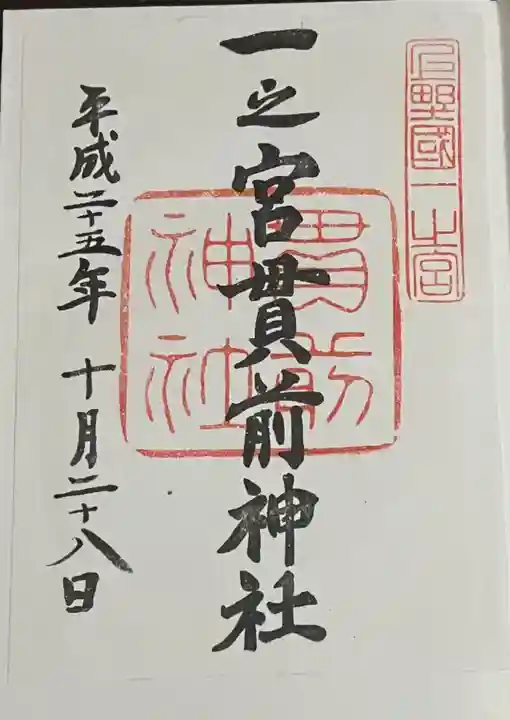 上野國一之宮
一之宮貫前神社
貫前
神社
平成二十五年 十月二十八日